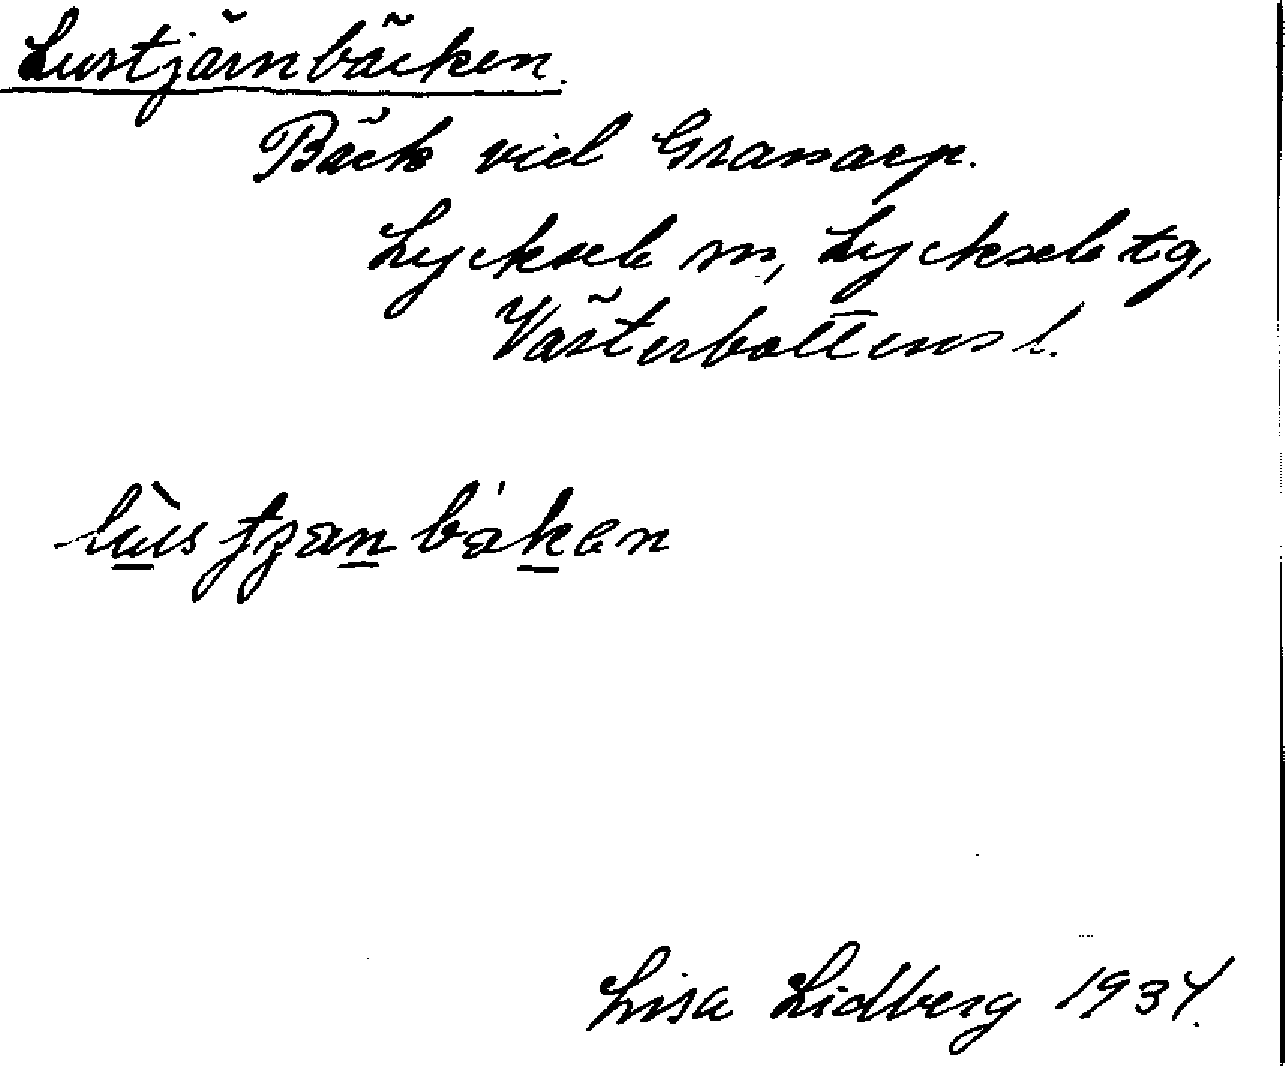 Lustjärnbäcken.
Bäck vid Granarp.
Lycksele m, Lycksele tg,
Västerbottens l.
Lisa Lidberg 1934.